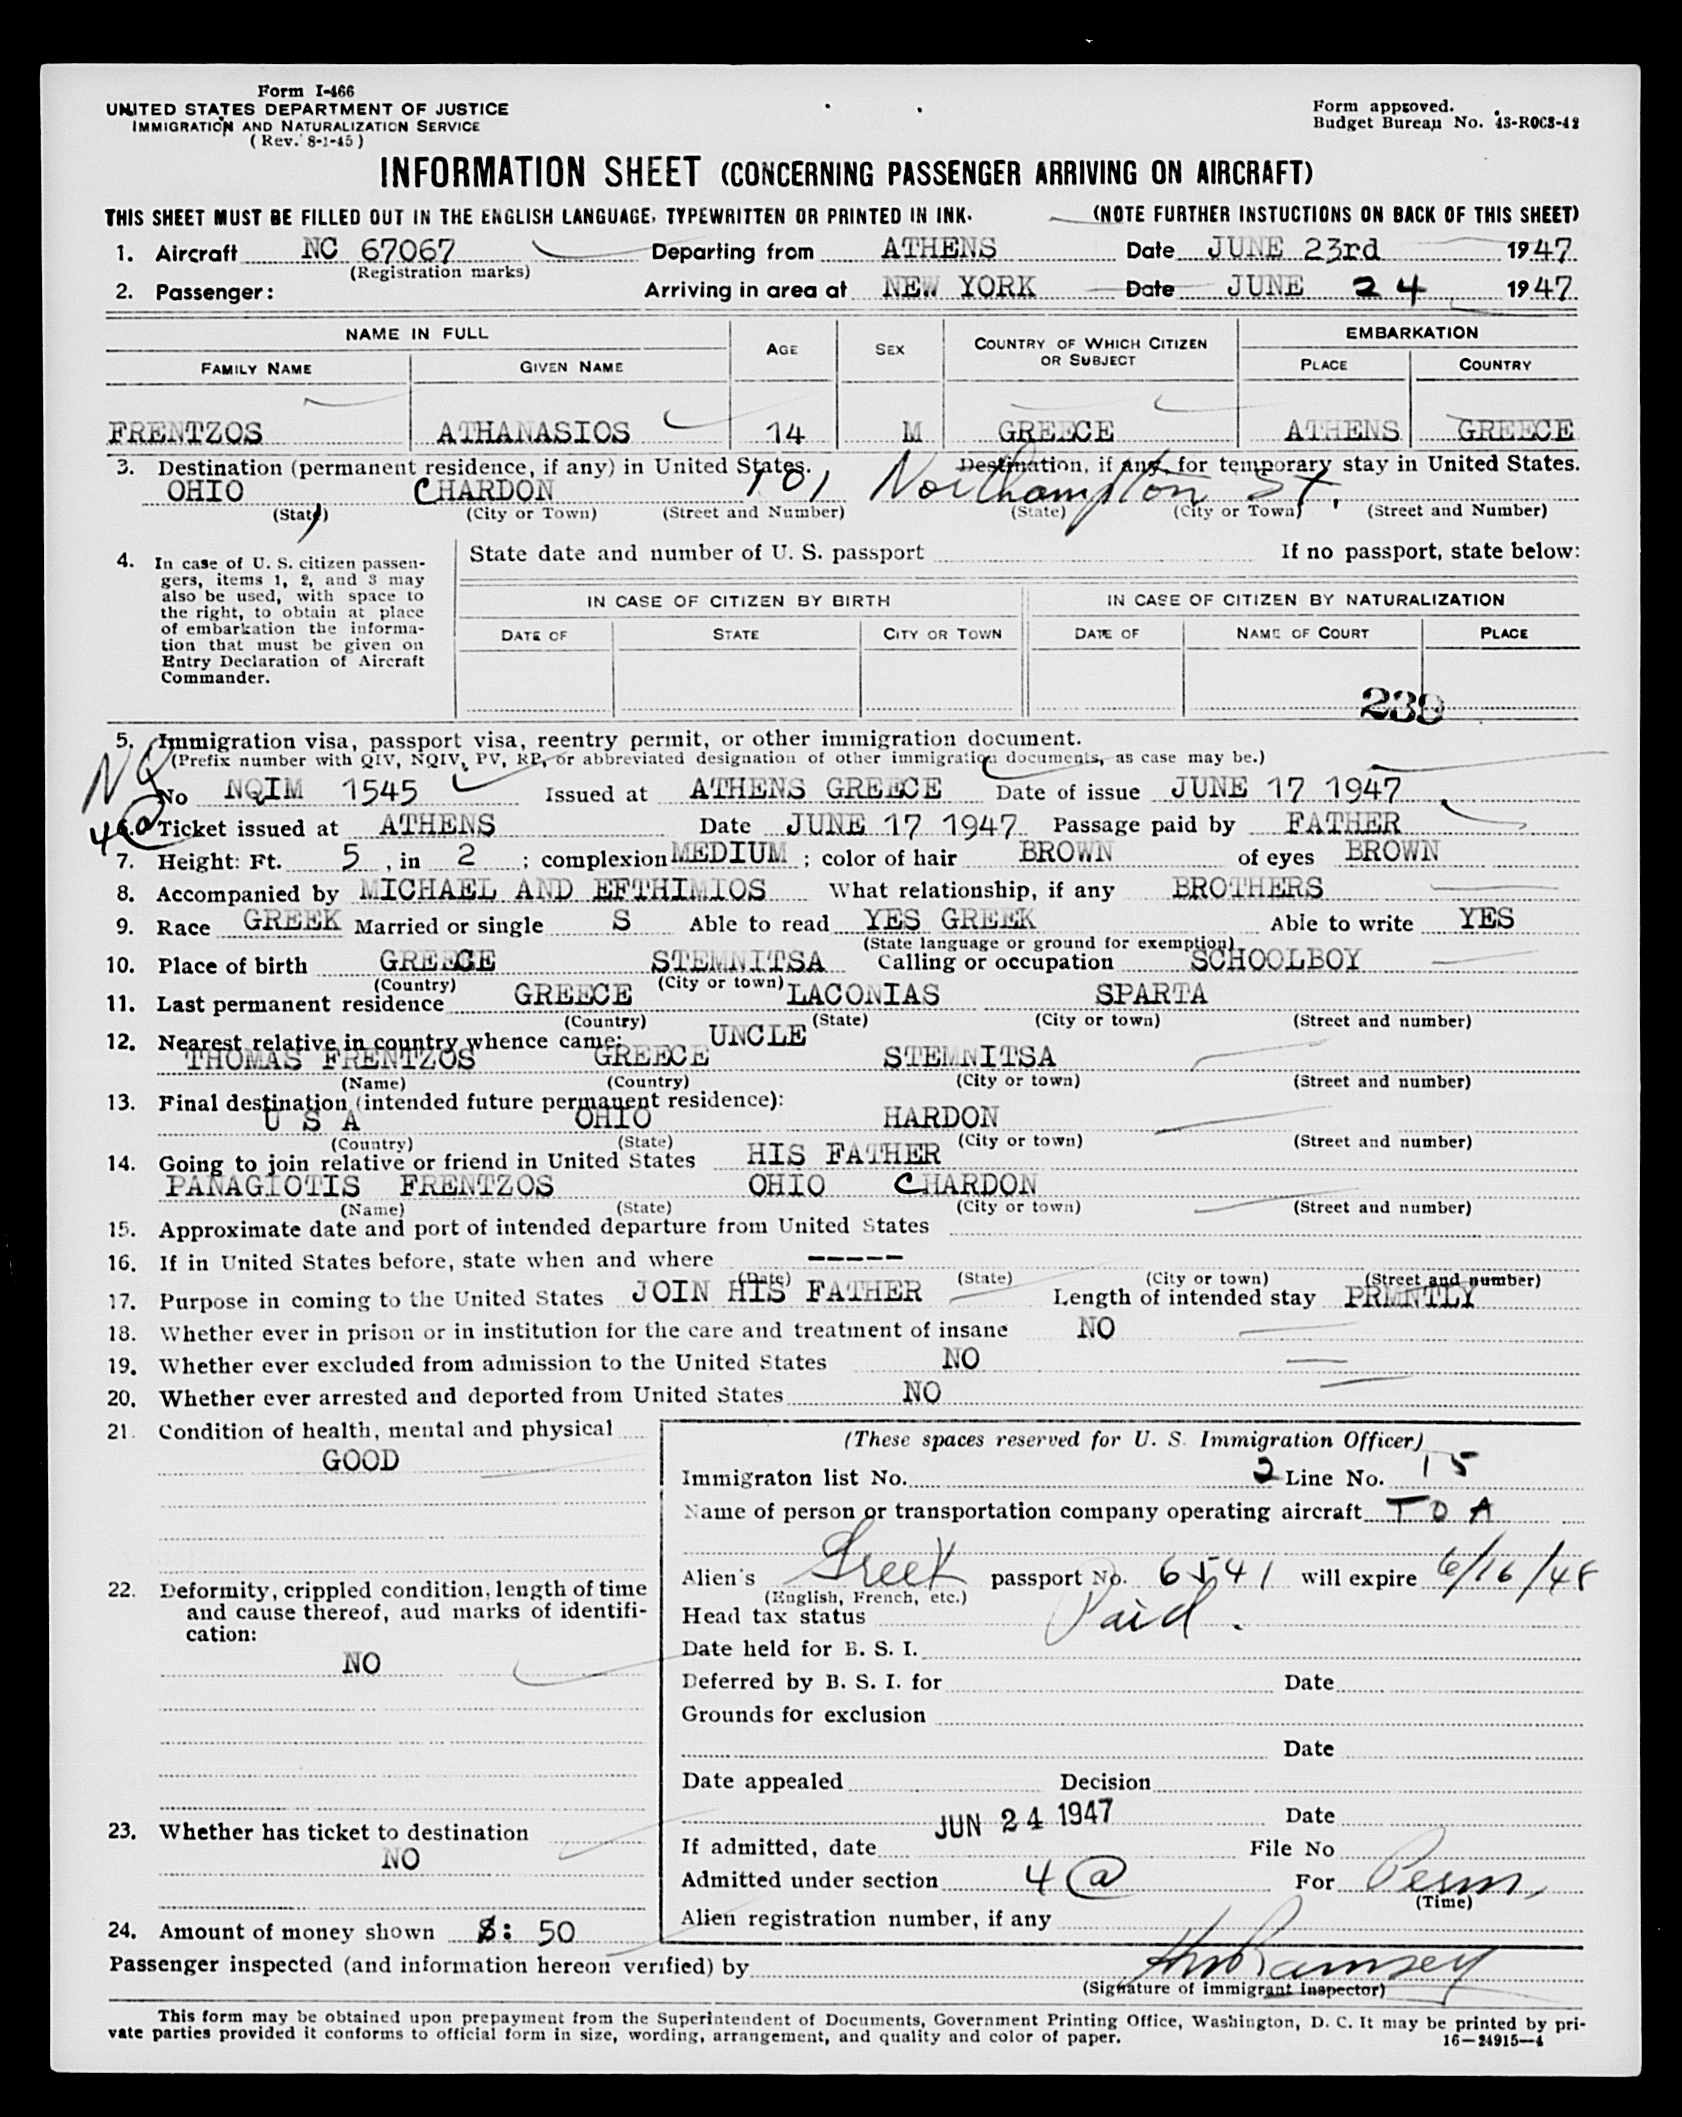 Form I-466
UNITED STATES DEPARTMENT OF JUSTICE
IMMIGRATION AND NATURALIZATION SERVICE
(Rev. 8-1-45)
Form approved.
Budget Bureau No. 43-R003-42
INFORMATION SHEET (CONCERNING PASSENGER ARRIVING ON AIRCRAFT)
THIS SHEET MUST BE FILLED OUT IN THE ENGLISH LANGUAGE, TYPEWRITTEN OR PRINTED IN INK. (NOTE FURTHER INSTUCTIONS ON BACK OF THIS SHEET)
1. Aircraft NC 67067 Departing from ATHENS Date JUNE 23rd 1947
(Registration marks)
2. Passenger: Arriving in area at NEW YORK Date JUNE 24 1947
NAME IN FULL AGE SEX COUNTRY OF WHICH CITIZEN OR SUBJECT EMBARKATION
FAMILY NAME GIVEN NAME PLACE COUNTRY
FRENTZOS ATHANASIOS 14 M GREECE ATHENS GREECE
3. Destination (permanent residence, if any) in United States. Destination, if any, for temporary stay in United States.
OHIO CHARDON 101 Northampton St.
(State) (City or Town) (Street and Number) (State) (City or Town) (Street and Number)
4. In case of U. S. citizen passengers, items 1, 2, and 3 may also be used, with space to the right, to obtain at place of embarkation the information that must be given on Entry Declaration of Aircraft Commander.
State date and number of U. S. passport If no passport, state below:
IN CASE OF CITIZEN BY BIRTH IN CASE OF CITIZEN BY NATURALIZATION
DATE OF STATE CITY OR TOWN DATE OF NAME OF COURT PLACE
239
5. Immigration visa, passport visa, reentry permit, or other immigration document.
(Prefix number with QIV, NQIV, PV, RP, or abbreviated designation of other immigration documents, as case may be.)
NQ
No NQIM 1545 Issued at ATHENS GREECE Date of issue JUNE 17 1947
4(a)
6. Ticket issued at ATHENS Date JUNE 17 1947 Passage paid by FATHER
7. Height: Ft. 5, in 2; complexion MEDIUM; color of hair BROWN of eyes BROWN
8. Accompanied by MICHAEL AND EFTHIMIOS What relationship, if any BROTHERS
9. Race GREEK Married or single S Able to read YES GREEK Able to write YES
(State language or ground for exemption)
10. Place of birth GREECE STEMNITSA Calling or occupation SCHOOLBOY
(Country) (City or town)
11. Last permanent residence GREECE LACONIAS SPARTA
(Country) (State) (City or town) (Street and number)
12. Nearest relative in country whence came: UNCLE
THOMAS FRENTZOS GREECE STEMNITSA
(Name) (Country) (City or town) (Street and number)
13. Final destination (intended future permanent residence):
U S A OHIO HARDON
(Country) (State) (City or town) (Street and number)
14. Going to join relative or friend in United States HIS FATHER
PANAGIOTIS FRENTZOS OHIO CHARDON
(Name) (State) (City or town) (Street and number)
15. Approximate date and port of intended departure from United States
16. If in United States before, state when and where -----
(Date) (State) (City or town) (Street and number)
17. Purpose in coming to the United States JOIN HIS FATHER Length of intended stay PRMNTLY
18. Whether ever in prison or in institution for the care and treatment of insane NO
19. Whether ever excluded from admission to the United States NO
20. Whether ever arrested and deported from United States NO
21. Condition of health, mental and physical
GOOD
22. Deformity, crippled condition, length of time and cause thereof, and marks of identification:
NO
23. Whether has ticket to destination
NO
24. Amount of money shown $: 50
(These spaces reserved for U. S. Immigration Officer)
Immigraton list No. 2 Line No. 15
Name of person or transportation company operating aircraft T O A
Alien's Greek passport No. 6541 will expire 6/16/48
(English, French, etc.)
Head tax status Paid.
Date held for B. S. I.
Deferred by B. S. I. for Date
Grounds for exclusion
Date
Date appealed Decision
Date
If admitted, date JUN 24 1947 File No
Admitted under section 4(a) For Perm.
(Time)
Alien registration number, if any
Passenger inspected (and information hereon verified) by Ramsey
(Signature of immigrant Inspector)
This form may be obtained upon prepayment from the Superintendent of Documents, Government Printing Office, Washington, D. C. It may be printed by private parties provided it conforms to official form in size, wording, arrangement, and quality and color of paper.
16—24915—4